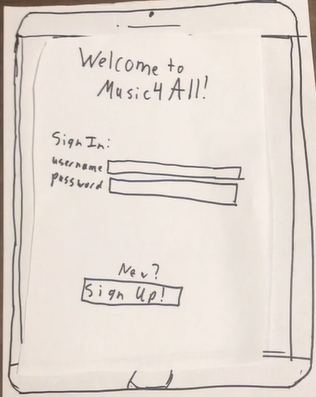 Welcome to
Music4All!
Sign In:
username
password
New?
Sign Up!